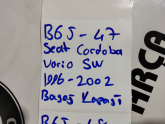 B65-47
Seat Cordoba
Vario SW
1996-2002
Bagaj Kapağı
RÇA